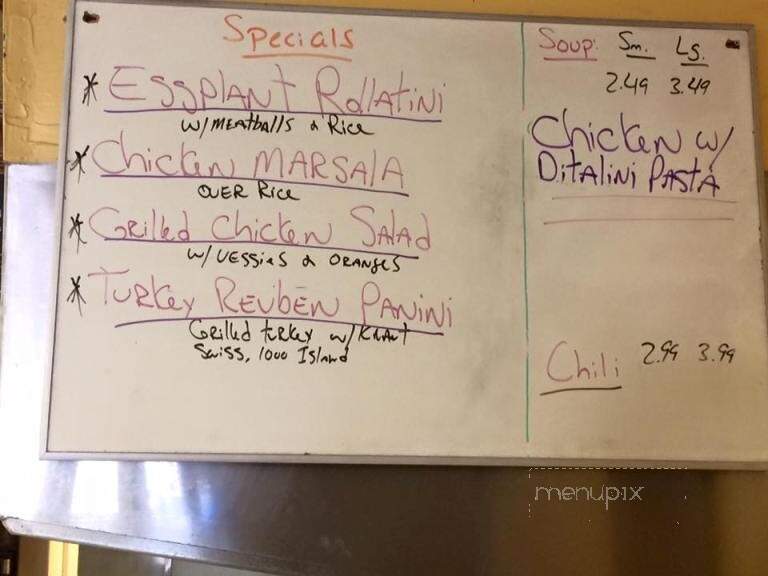 Specials
* Eggplant Rollatini
w/ Meatballs & Rice
* Chicken Marsala
over Rice
* Grilled Chicken Salad
w/ Veggies & Oranges
* Turkey Reuben Panini
Grilled turkey w/ Kraut
Swiss, 1000 Island
Soup: Sm. Lg.
2.49 3.49
Chicken w/
Ditalini Pasta
Chili 2.99 3.99
menupix